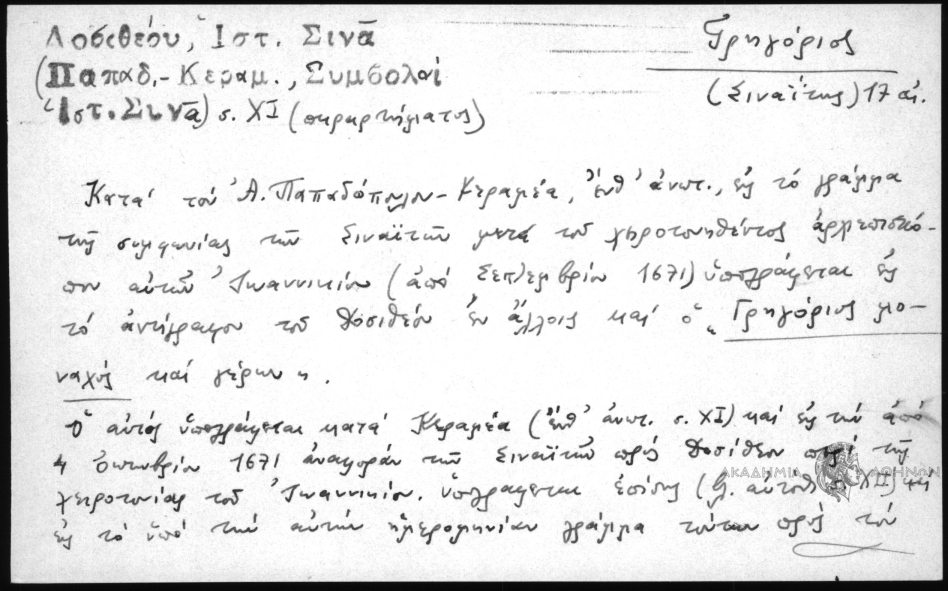 Δοσιθέου, Ἱστ. Σινᾶ
(Παπαδ.-Κεραμ., Συμβολαί
Ἱστ. Σινᾶ) σ. XI (παραρτήματος)
Γρηγόριος
(Σιναΐτης) 17 αἰ.
Κατά τόν Ἀ. Παπαδόπουλον-Κεραμέα, ἔνθ' ἀνωτ., εἰς τό γράμμα
τῆς συμφωνίας τῶν Σιναϊτῶν μετά τοῦ χειροτονηθέντος ἀρχιεπισκό-
που αὐτῶν Ἰωαννικίου (ἀπό Σεπτεμβρίου 1671) ὑπογράφεται εἰς
τό ἀντίγραφον τοῦ Δοσιθέου ἐν ἄλλοις καί ὁ "Γρηγόριος μο-
ναχός καί γέρων".
Ὁ αὐτός ὑπογράφεται κατά Κεραμέα (ἔνθ' ἀνωτ. σ. XI) καί εἰς τήν ἀπό
4 Ὀκτωβρίου 1671 ἀναφοράν τῶν Σιναϊτῶν πρός Δοσίθεον περί τῆς
χειροτονίας τοῦ Ἰωαννικίου. Ὑπογράφεται ἐπίσης (βλ. αὐτόθι σ. XII) καί
εἰς τό ὑπό τήν αὐτήν ἡμερομηνίαν γράμμα τούτων πρός τόν
ΑΚΑΔΗΜΙΑ ΑΘΗΝΩΝ